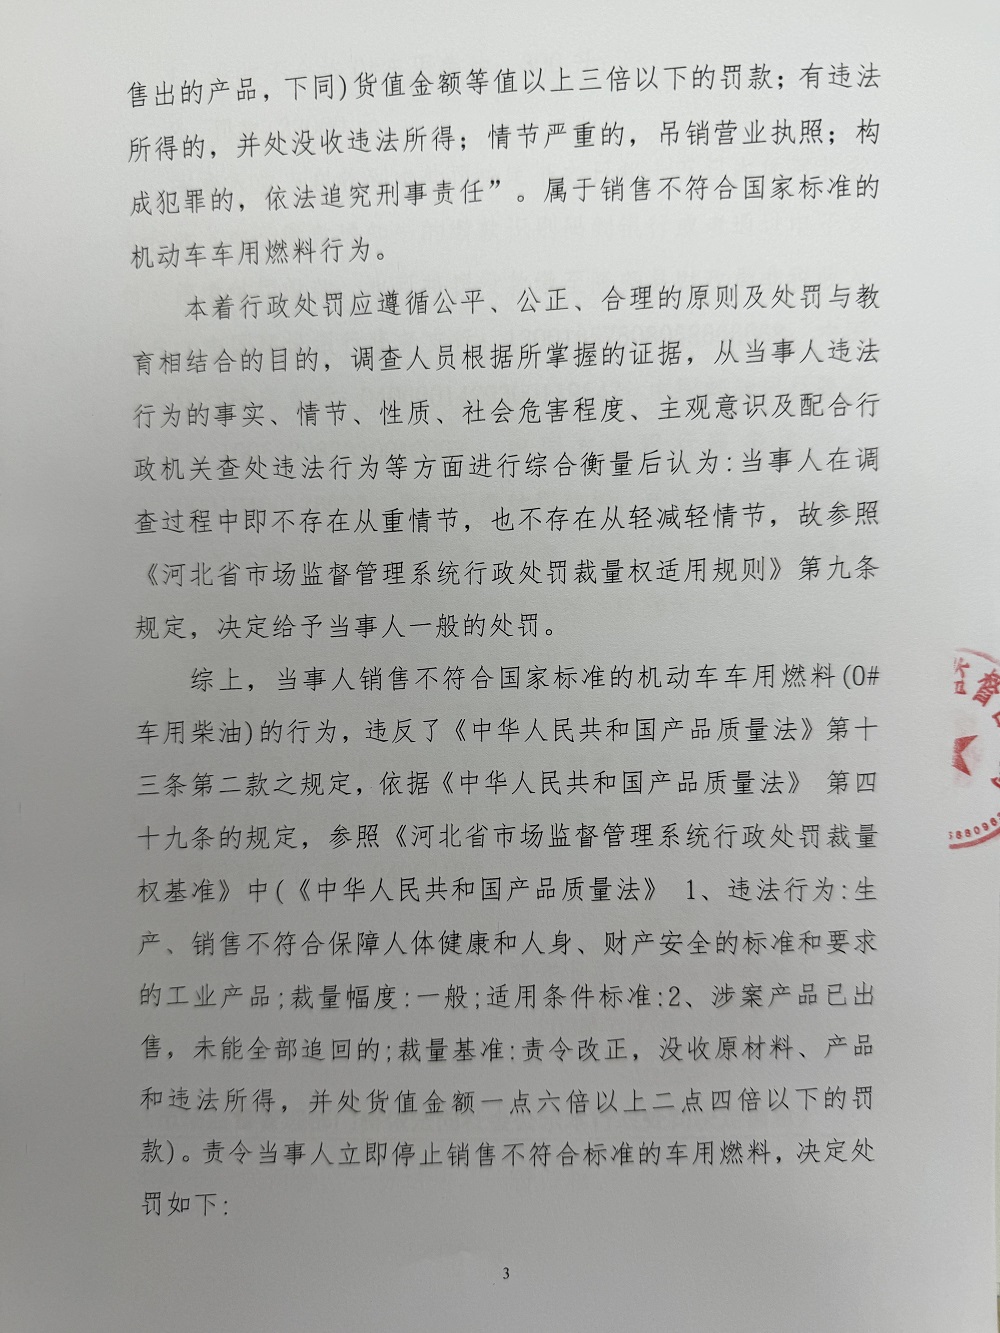 售出的产品，下同)货值金额等值以上三倍以下的罚款；有违法
所得的，并处没收违法所得；情节严重的，吊销营业执照；构
成犯罪的，依法追究刑事责任”。属于销售不符合国家标准的
机动车车用燃料行为。
本着行政处罚应遵循公平、公正、合理的原则及处罚与教
育相结合的目的，调查人员根据所掌握的证据，从当事人违法
行为的事实、情节、性质、社会危害程度、主观意识及配合行
政机关查处违法行为等方面进行综合衡量后认为:当事人在调
查过程中即不存在从重情节，也不存在从轻减轻情节，故参照
《河北省市场监督管理系统行政处罚裁量权适用规则》第九条
规定，决定给予当事人一般的处罚。
综上，当事人销售不符合国家标准的机动车车用燃料(0#
车用柴油)的行为，违反了《中华人民共和国产品质量法》第十
三条第二款之规定，依据《中华人民共和国产品质量法》 第四
十九条的规定，参照《河北省市场监督管理系统行政处罚裁量
权基准》中(《中华人民共和国产品质量法》 1、违法行为:生
产、销售不符合保障人体健康和人身、财产安全的标准和要求
的工业产品;裁量幅度:一般;适用条件标准:2、涉案产品已出
售，未能全部追回的;裁量基准:责令改正，没收原材料、产品
和违法所得，并处货值金额一点六倍以上二点四倍以下的罚
款)。责令当事人立即停止销售不符合标准的车用燃料，决定处
罚如下:
3
督